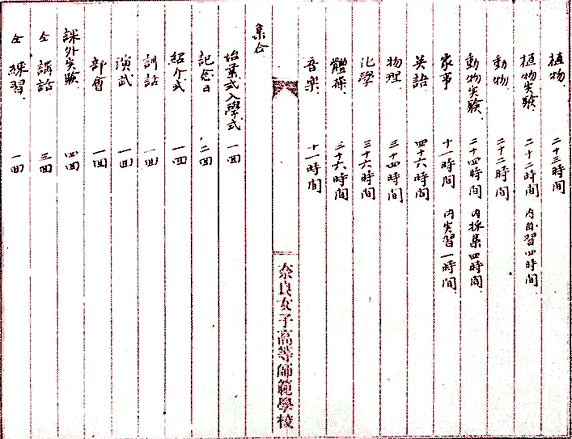 植物、 二十三時間
植物実験、 二十二時間、内自習四時間、
動物、 二十二時間
動物実験、 二十四時間 内採集四時間、
家事 十一時間 内実習一時間、
英語 四十六時間
物理、 三十四時間
化學 三十六時間
體操、 三十六時間
音楽、 十一時間
奈良女子高等師範學校
集会
始業式入學式 一回
記念日 二回
紹介式 一回
訓話 一回
演武 一回
部會 一回
課外実験、 四回
仝 講話 三回
仝 練習、 一回